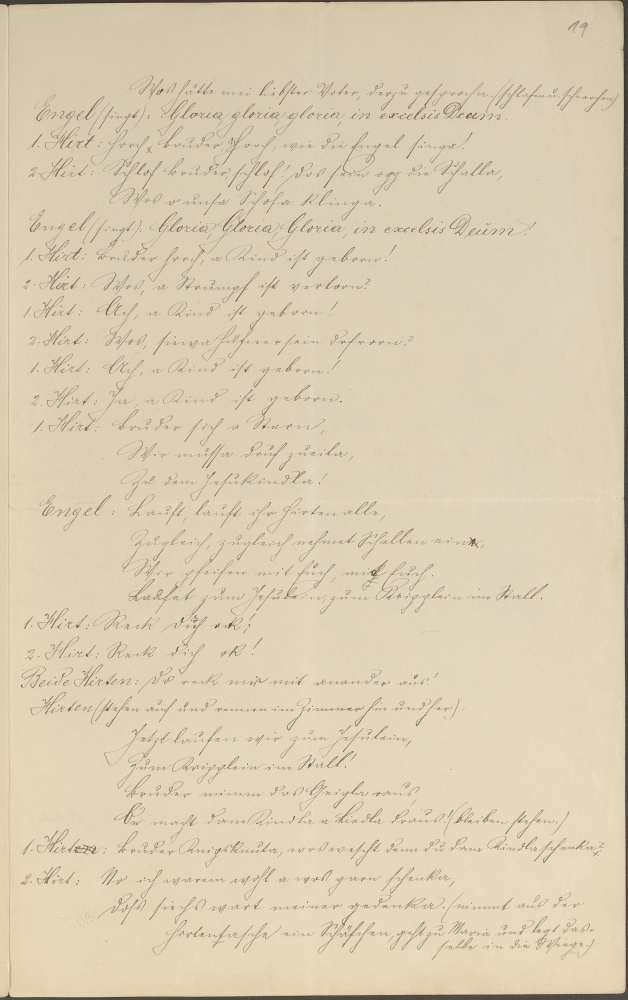 19
Wos hätte mei libster Voter, derzu gesprocha. (schlafen u. schnarchen)
Engel (singt): Gloria, gloria, gloria, in excelsis Deum.
1. Hirt: Horch, Bruder horch, wie die Engel singa!
2. Hirt: Schlof Bruder, schlof! Dos sein die Schalla,
Wos o unsa Schofa klinga.
Engel (singt): Gloria, Gloria, Gloria, in excelsis Deum!
1. Hirt: Bruder horch, a Kind ist geborn!
2. Hirt: Wos, a Strumpf ist verlorn?
1 Hirt: Ach, a Kind ist geborn!
2. Hirt: Wos, sein dofrorn?
1. Hirt: Ach, a Kind ist geborn!
2. Hirt: Ja, a Kind ist geborn.
1. Hirt: Bruder sich a Stern,
Wir mussa druf zueila,
Zu dem Jesukindla!
Engel: Lauft, lauft ihr Hirten alle,
Zugleich, zugleich nehmet Schallen ein,
Wir pfeifen mit Euch, mit Euch.
Laufet zum Jesulein, zum Kripplein im Stall.
1. Hirt: Reck dich ok!
2. Hirt: Reck dich ok!
Beide Hirten: Do reck mir mit anander aus!
Hirten (stehen auf und rennen im Zimmer hin und her).
Jetzt laufen wir zum Jesulein,
Zum Kripplein im Stall!
Bruder nimm dos Geigla raus,
Ou macht dam Kindla a Liedla draus! (bleiben stehen.)
1. Hirt: Bruder, wos wescht denn du dam Kindla schenka?
2. Hirt: No ich warm wohl a wos garn schenka,
Dohs siehs wart meiner gedenka. (nimmt aus der
Hirtentasche ein Schäfchen, geht zu Maria und legt das-
selbe in die Wiege)